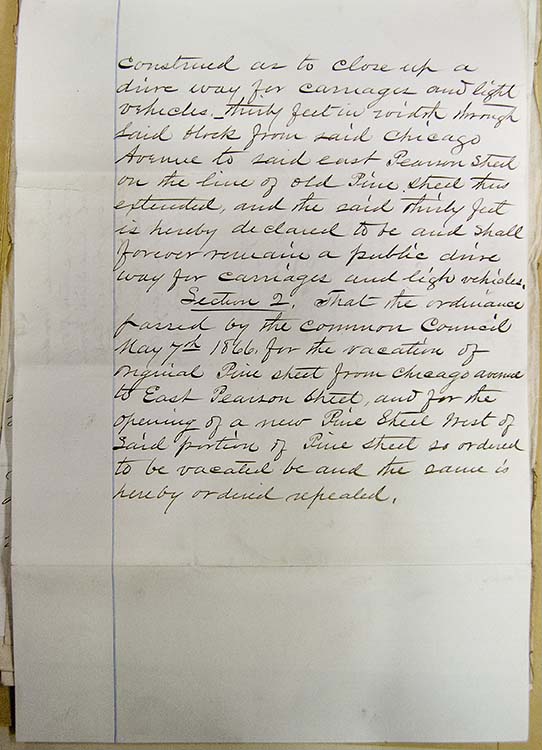 construed as to close up a
drive way for carriages and light
vehicles, thirty feet in width through
said block from said Chicago
Avenue to said east Pearson Street
on the line of old Pine Street thus
extended, and the said thirty feet
is hereby declared to be and shall
forever remain a public drive
way for carriages and ligh vehicles.
Section 2, That the ordinance
passed by the common Council
May 7th 1866 for the vacation of
original Pine street from Chicago avenue
to East Pearson Street, and for the
opening of a new Pine Street West of
said portion of Pine street so ordered
to be vacated be and the same is
hereby ordered repealed.